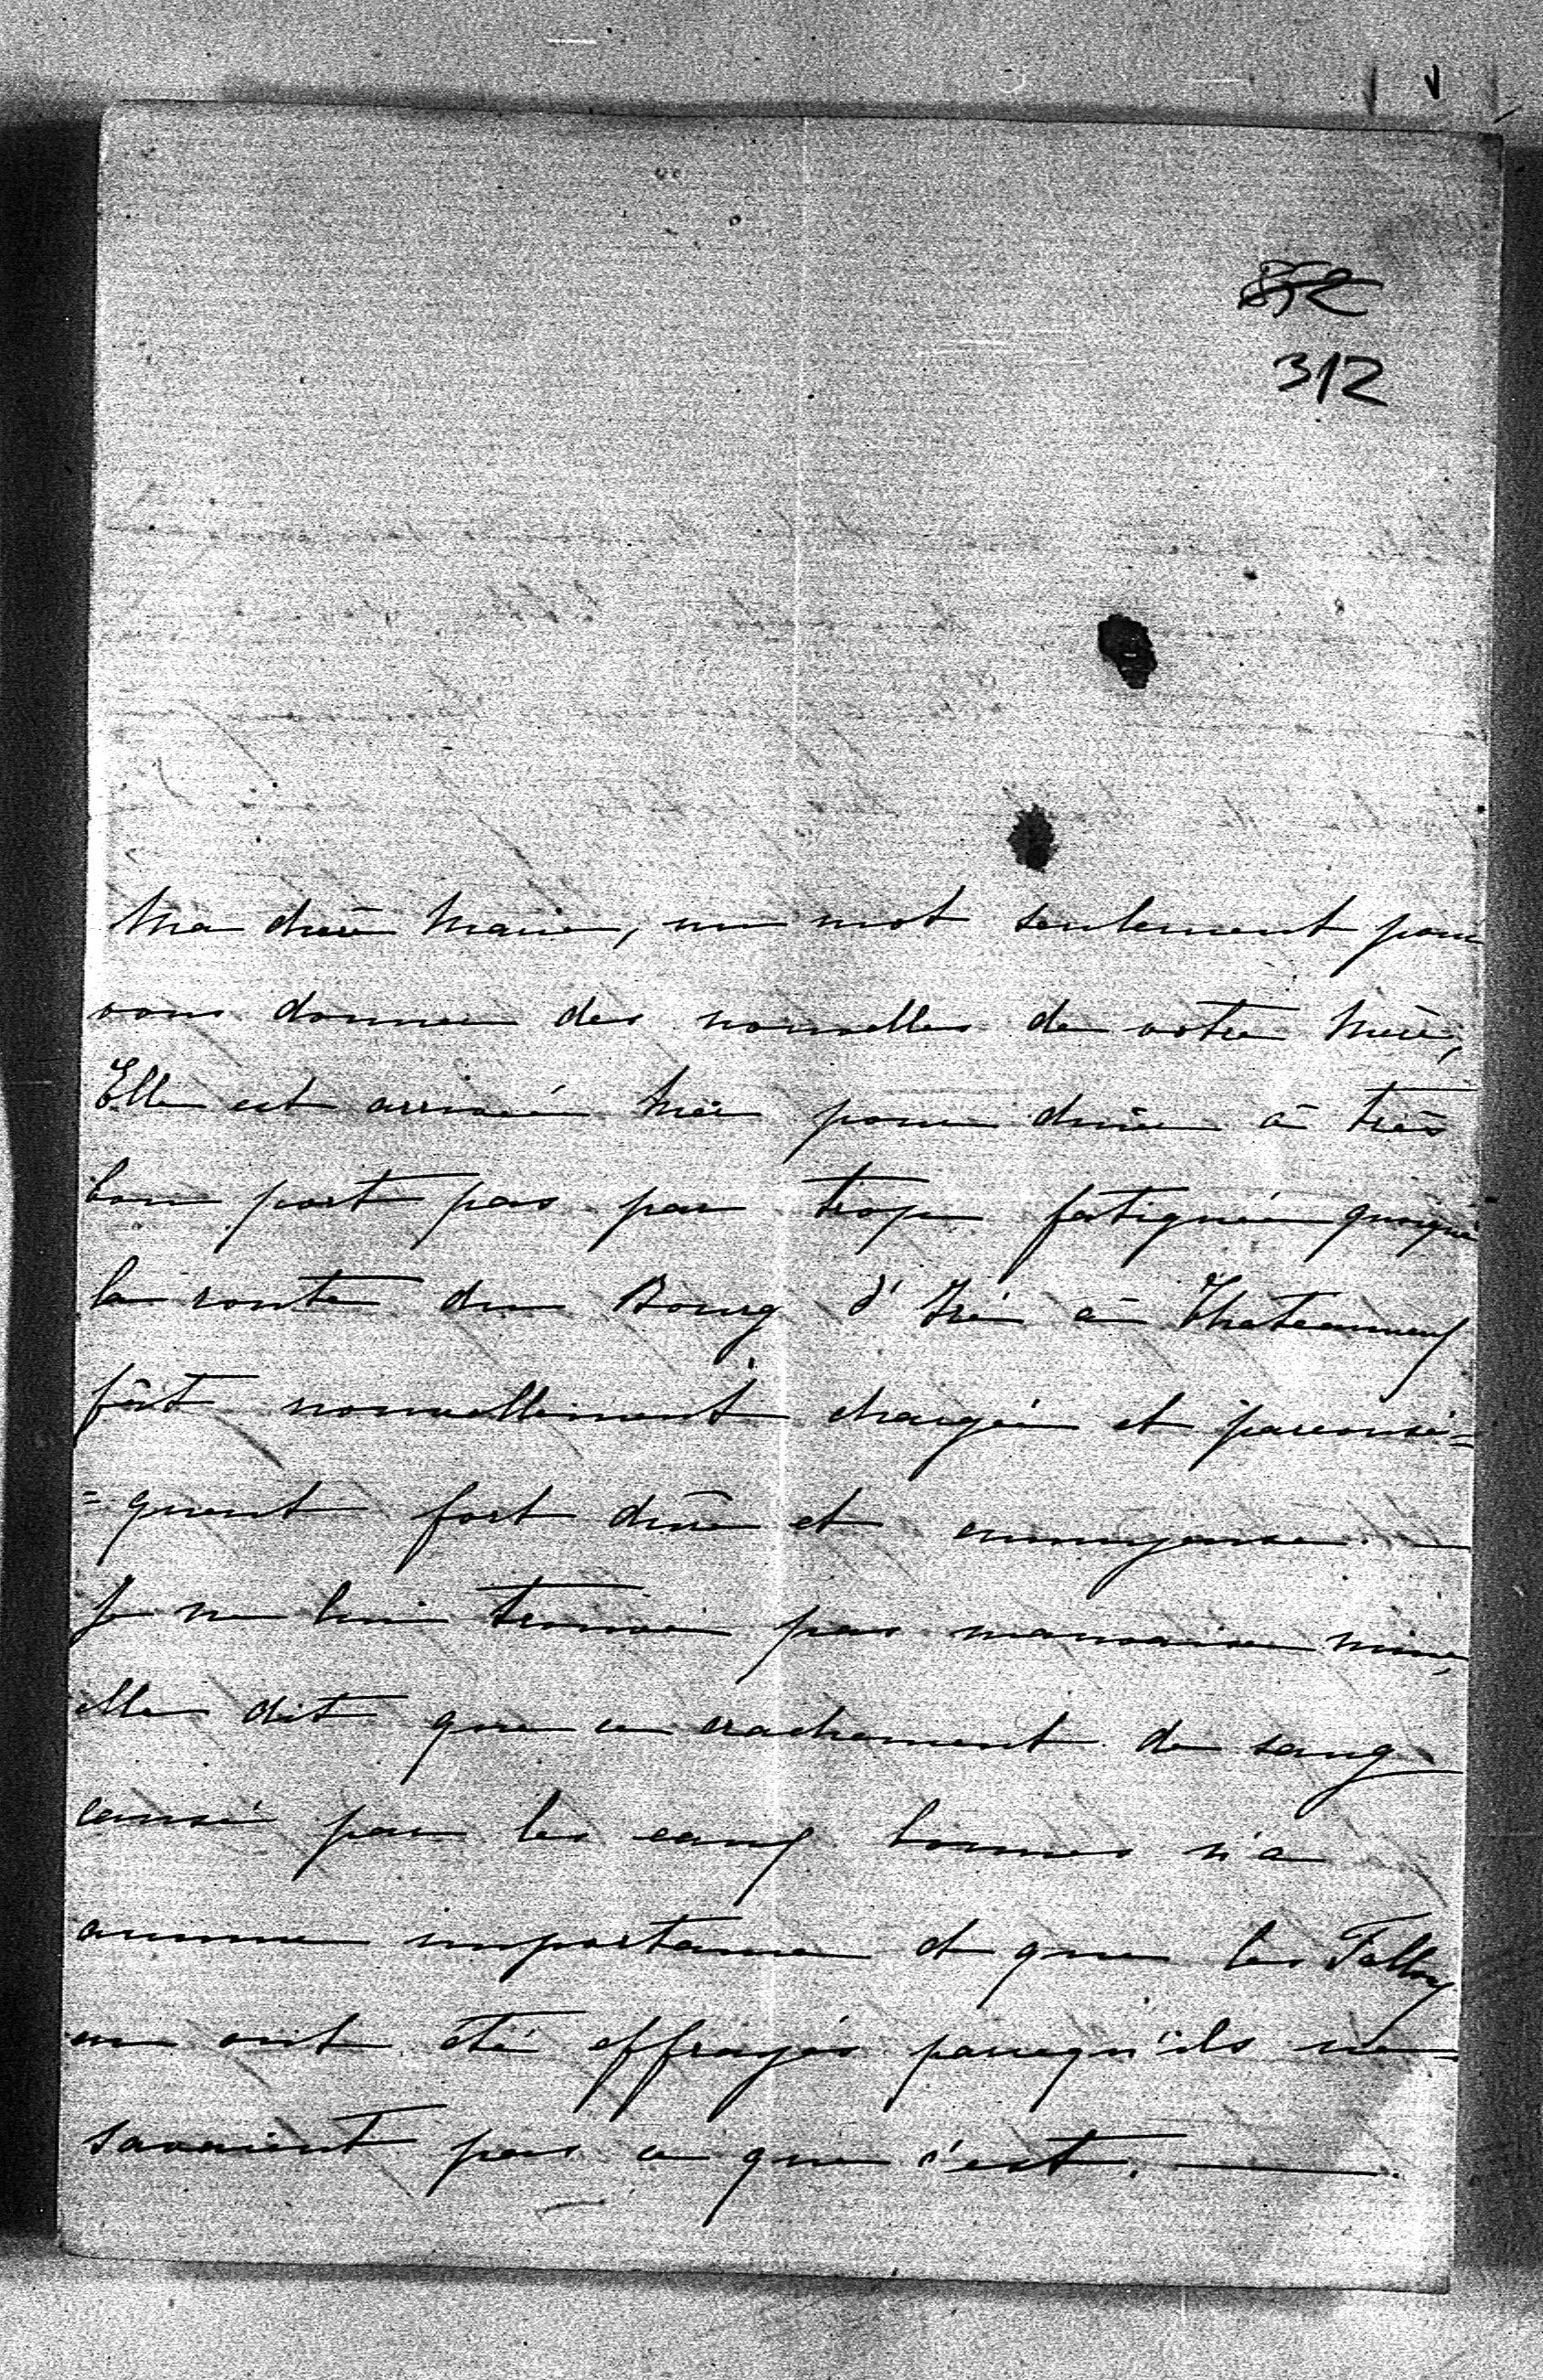 352
312
Ma chère Marie, un mot seulement pour
vous donner des nouvelles de votre mère,
Elle est arrivée hier pour diner à très
bon port pas par trop fatiguée quoique
la route du Bourg d'Iré à Chateauneuf
fût nouvellement chargée et parconsé=
=quent fort dure et ennuyeuse. —
Je ne lui trouve pas mauvaise mine,
elle dit que ce crachement de sang
causé par les eaux bonnes n'a
aucune importance et que les Falloux
en ont été effrayés parcequ'ils ne
savaient pas ce que c'est. —